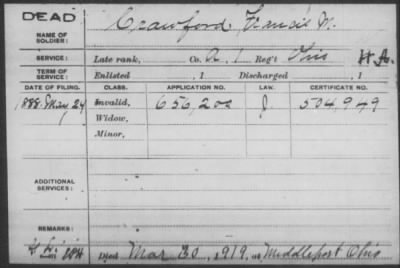 DEAD
NAME OF SOLDIER: Crawford, Francis M.
SERVICE: Late rank, Co. A, 1 Reg't Ohio H.A.
TERM OF SERVICE: Enlisted , 1 Discharged , 1
DATE OF FILING. CLASS. APPLICATION NO. LAW. CERTIFICATE NO.
1888 May 24 Invalid, 656,202 J. 504,949
Widow,
Minor,
ADDITIONAL SERVICES:
REMARKS:
Died Mar 30, 1919, at Middleport Ohio